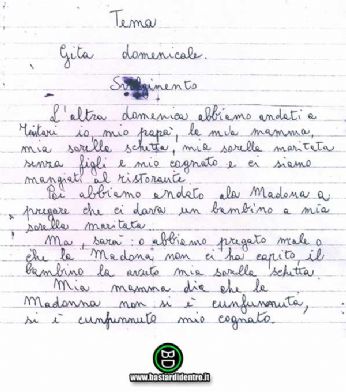 Tema
Gita domenicale.
Svolgimento
L'altra domenica abbiamo andati a
io, mio papà, la mia mamma,
mia sorella schetta, mia sorella maritata
senza figli e mio cognato e ci siamo
mangiati al ristorante.
Poi abbiamo andato ala Madona a
pregare che ci dava un bambino a mia
sorella maritata.
Ma, sarà: o abbiamo pregato male o
che la Madona non ci ha capito, il
bambino la avuto mia sorella schetta.
Mia mamma dice che la
Madonna non si è cunfunnuta,
si è cunfunnuto mio cognato.
www.bastardidentro.it